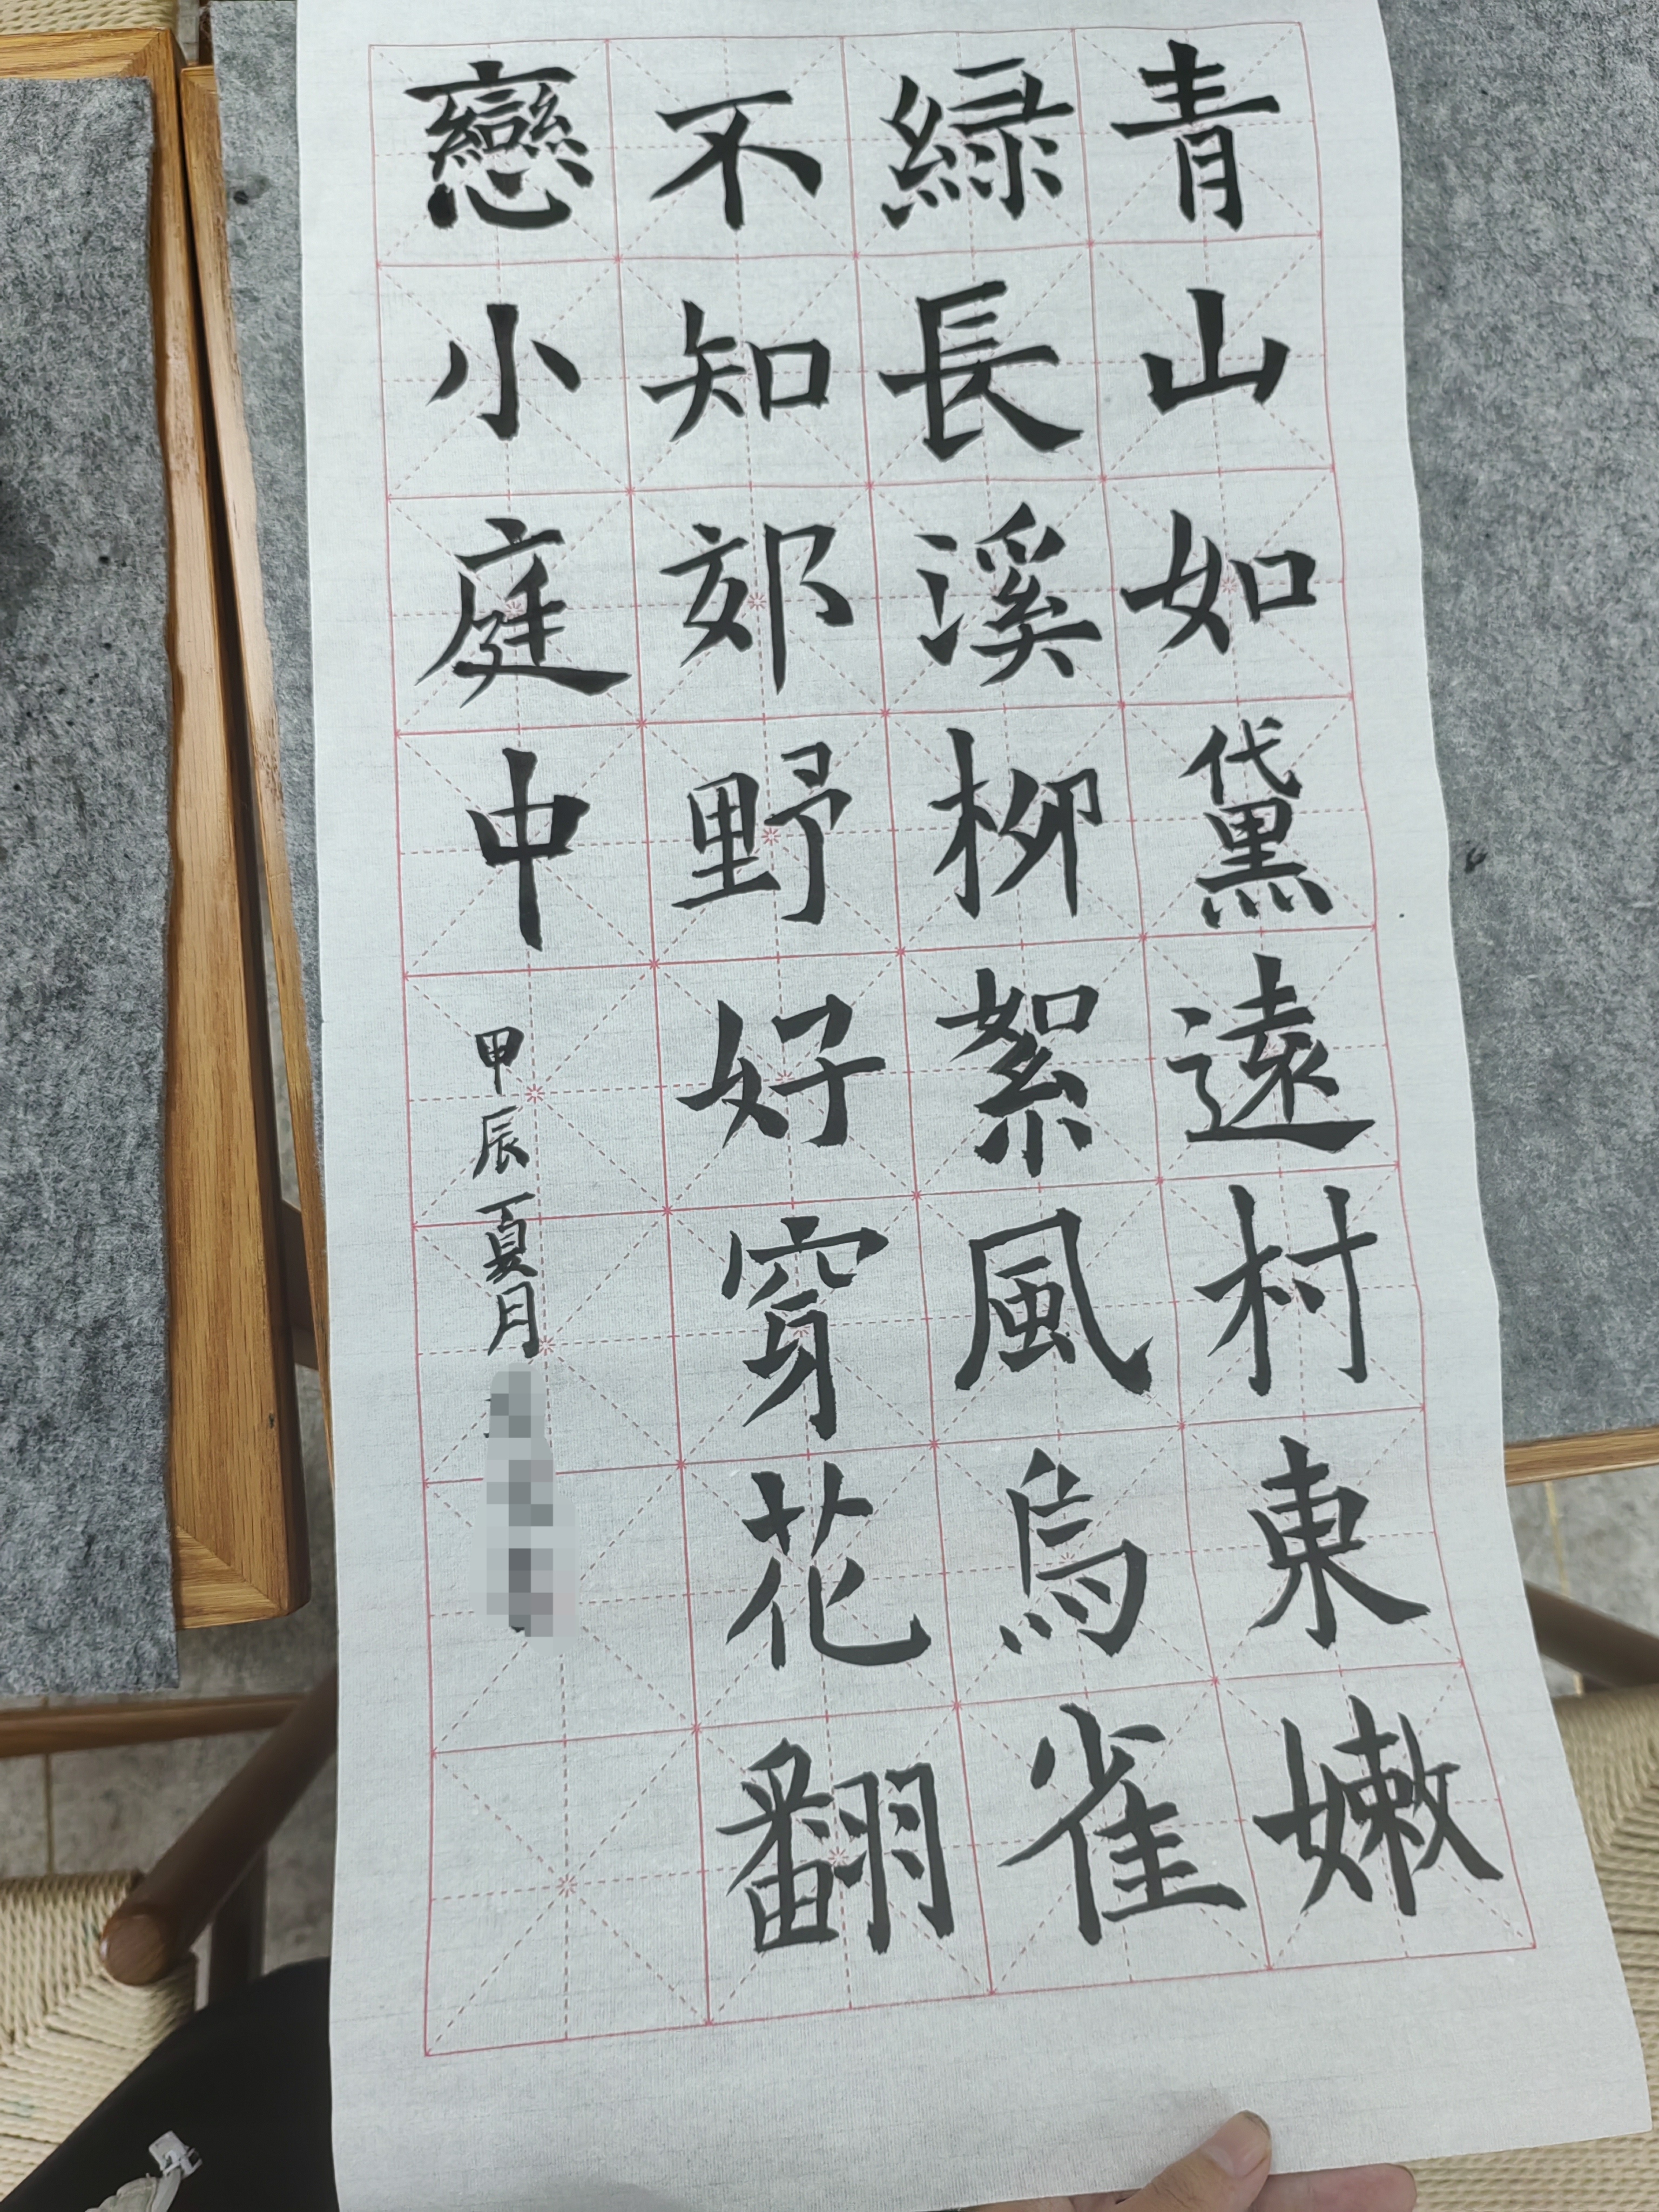 青山如黛遠村東嫩
緑長溪柳絮風鳥雀
不知郊野好穿花翻
戀小庭中
甲辰夏月